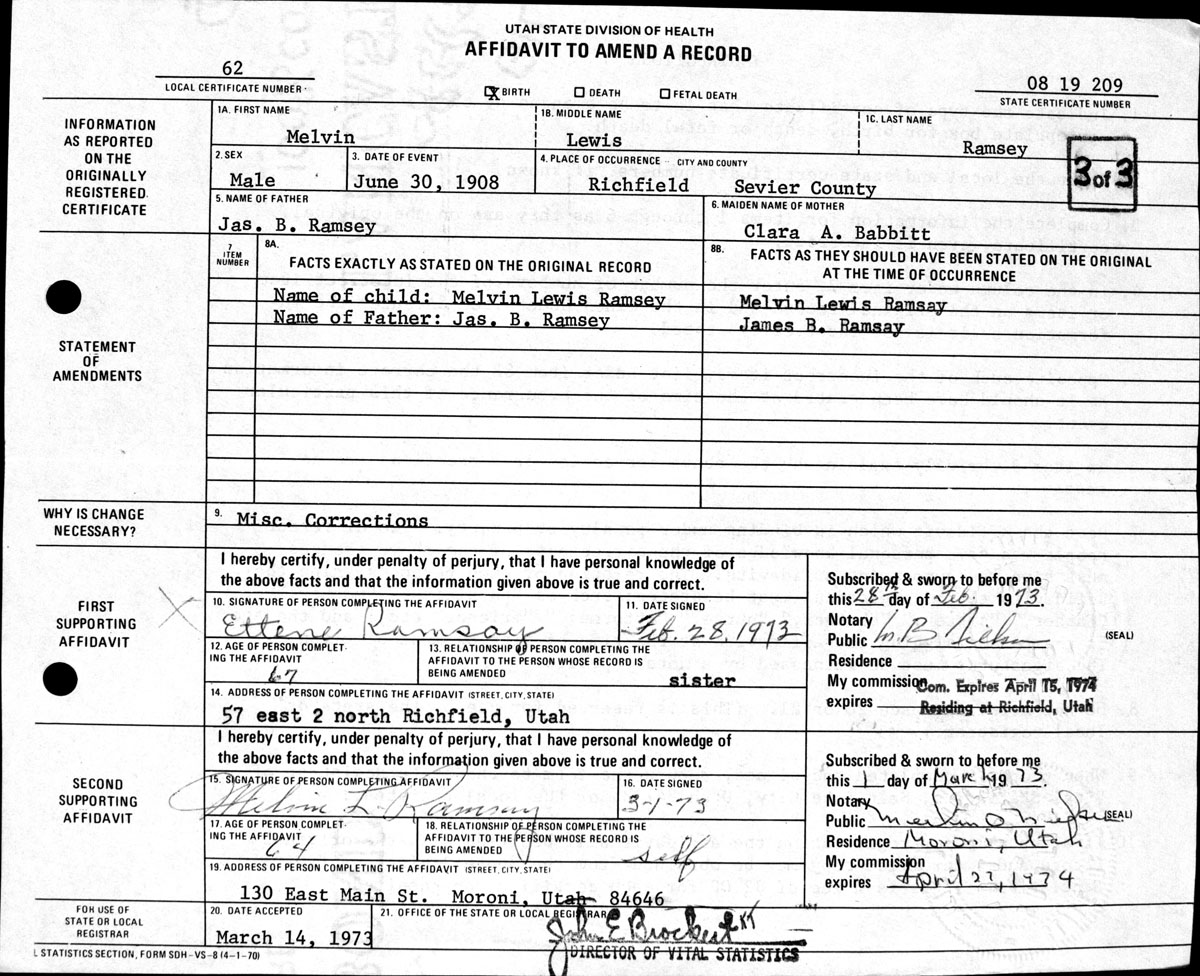 UTAH STATE DIVISION OF HEALTH
AFFIDAVIT TO AMEND A RECORD
62
LOCAL CERTIFICATE NUMBER
X BIRTH DEATH FETAL DEATH
08 19 209
STATE CERTIFICATE NUMBER
INFORMATION AS REPORTED ON THE ORIGINALLY REGISTERED CERTIFICATE
1A. FIRST NAME
Melvin
1B. MIDDLE NAME
Lewis
1C. LAST NAME
Ramsey
3 of 3
2. SEX
Male
3. DATE OF EVENT
June 30, 1908
4. PLACE OF OCCURRENCE - CITY AND COUNTY
Richfield Sevier County
5. NAME OF FATHER
Jas. B. Ramsey
6. MAIDEN NAME OF MOTHER
Clara A. Babbitt
STATEMENT OF AMENDMENTS
7 ITEM NUMBER
8A.
FACTS EXACTLY AS STATED ON THE ORIGINAL RECORD
8B. FACTS AS THEY SHOULD HAVE BEEN STATED ON THE ORIGINAL
AT THE TIME OF OCCURRENCE
Name of child: Melvin Lewis Ramsey Melvin Lewis Ramsay
Name of Father: Jas. B. Ramsey James B. Ramsay
WHY IS CHANGE NECESSARY?
9. Misc. Corrections
FIRST SUPPORTING AFFIDAVIT
I hereby certify, under penalty of perjury, that I have personal knowledge of
the above facts and that the information given above is true and correct.
10. SIGNATURE OF PERSON COMPLETING THE AFFIDAVIT
Ettene Ramsay
11. DATE SIGNED
Feb. 28, 1973
12. AGE OF PERSON COMPLETING THE AFFIDAVIT
67
13. RELATIONSHIP OF PERSON COMPLETING THE
AFFIDAVIT TO THE PERSON WHOSE RECORD IS
BEING AMENDED
sister
14. ADDRESS OF PERSON COMPLETING THE AFFIDAVIT (STREET, CITY, STATE)
57 east 2 north Richfield, Utah
Subscribed & sworn to before me
this 28th day of Feb. 1973.
Notary
Public M.B.
(SEAL)
Residence
My commission
expires
Com. Expires April 15, 1974
Residing at Richfield, Utah
SECOND SUPPORTING AFFIDAVIT
I hereby certify, under penalty of perjury, that I have personal knowledge of
the above facts and that the information given above is true and correct.
15. SIGNATURE OF PERSON COMPLETING AFFIDAVIT
Melvin L. Ramsay
16. DATE SIGNED
3-1-73
17. AGE OF PERSON COMPLETING THE AFFIDAVIT
64
18. RELATIONSHIP OF PERSON COMPLETING THE
AFFIDAVIT TO THE PERSON WHOSE RECORD IS
BEING AMENDED
self
19. ADDRESS OF PERSON COMPLETING THE AFFIDAVIT (STREET, CITY, STATE)
130 East Main St. Moroni, Utah 84646
Subscribed & sworn to before me
this 1 day of March 1973.
Notary
Public
(SEAL)
Residence Moroni, Utah
My commission
expires April 27, 1974
FOR USE OF STATE OR LOCAL REGISTRAR
20. DATE ACCEPTED
March 14, 1973
21. OFFICE OF THE STATE OR LOCAL REGISTRAR
John E Brockert KT
DIRECTOR OF VITAL STATISTICS
L STATISTICS SECTION, FORM SDH-VS-8 (4-1-70)